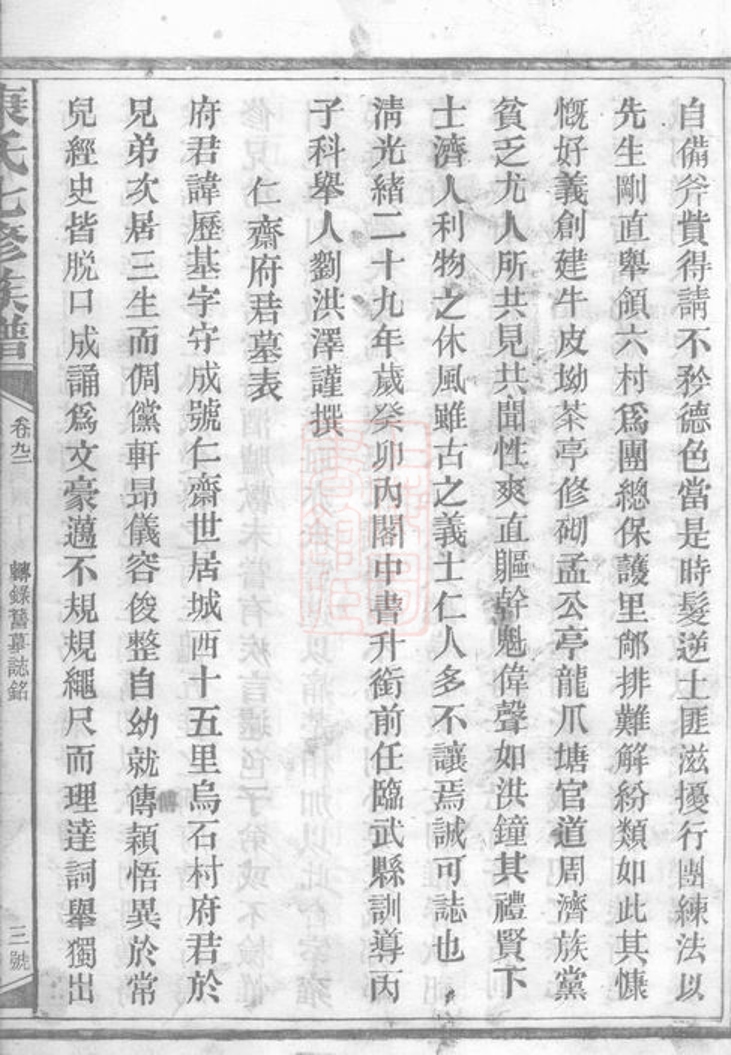 自備斧貲得請不矜德色當是時髮逆土匪滋擾行團練法以
先生剛直舉領六村爲團總保護里鄰排難解紛類如此其慷
慨好義創建牛皮坳茶亭修砌孟公亭龍爪塘官道周濟族黨
貧乏尤人所共見共聞性爽直軀幹魁偉聲如洪鐘其禮賢下
士濟人利物之休風雖古之義士仁人多不讓焉誠可誌也
淸光緒二十九年歲癸卯內閣中書升銜前任臨武縣訓導丙
子科舉人劉洪澤謹撰
仁齋府君墓表
府君諱歷基字守成號仁齋世居城西十五里烏石村府君於
兄弟次居三生而倜儻軒昂儀容俊整自幼就傅穎悟異於常
兒經史皆脫口成誦爲文豪邁不規規繩尺而理達詞舉獨出
康氏七修族譜
卷九二
轉錄舊墓誌銘
三號